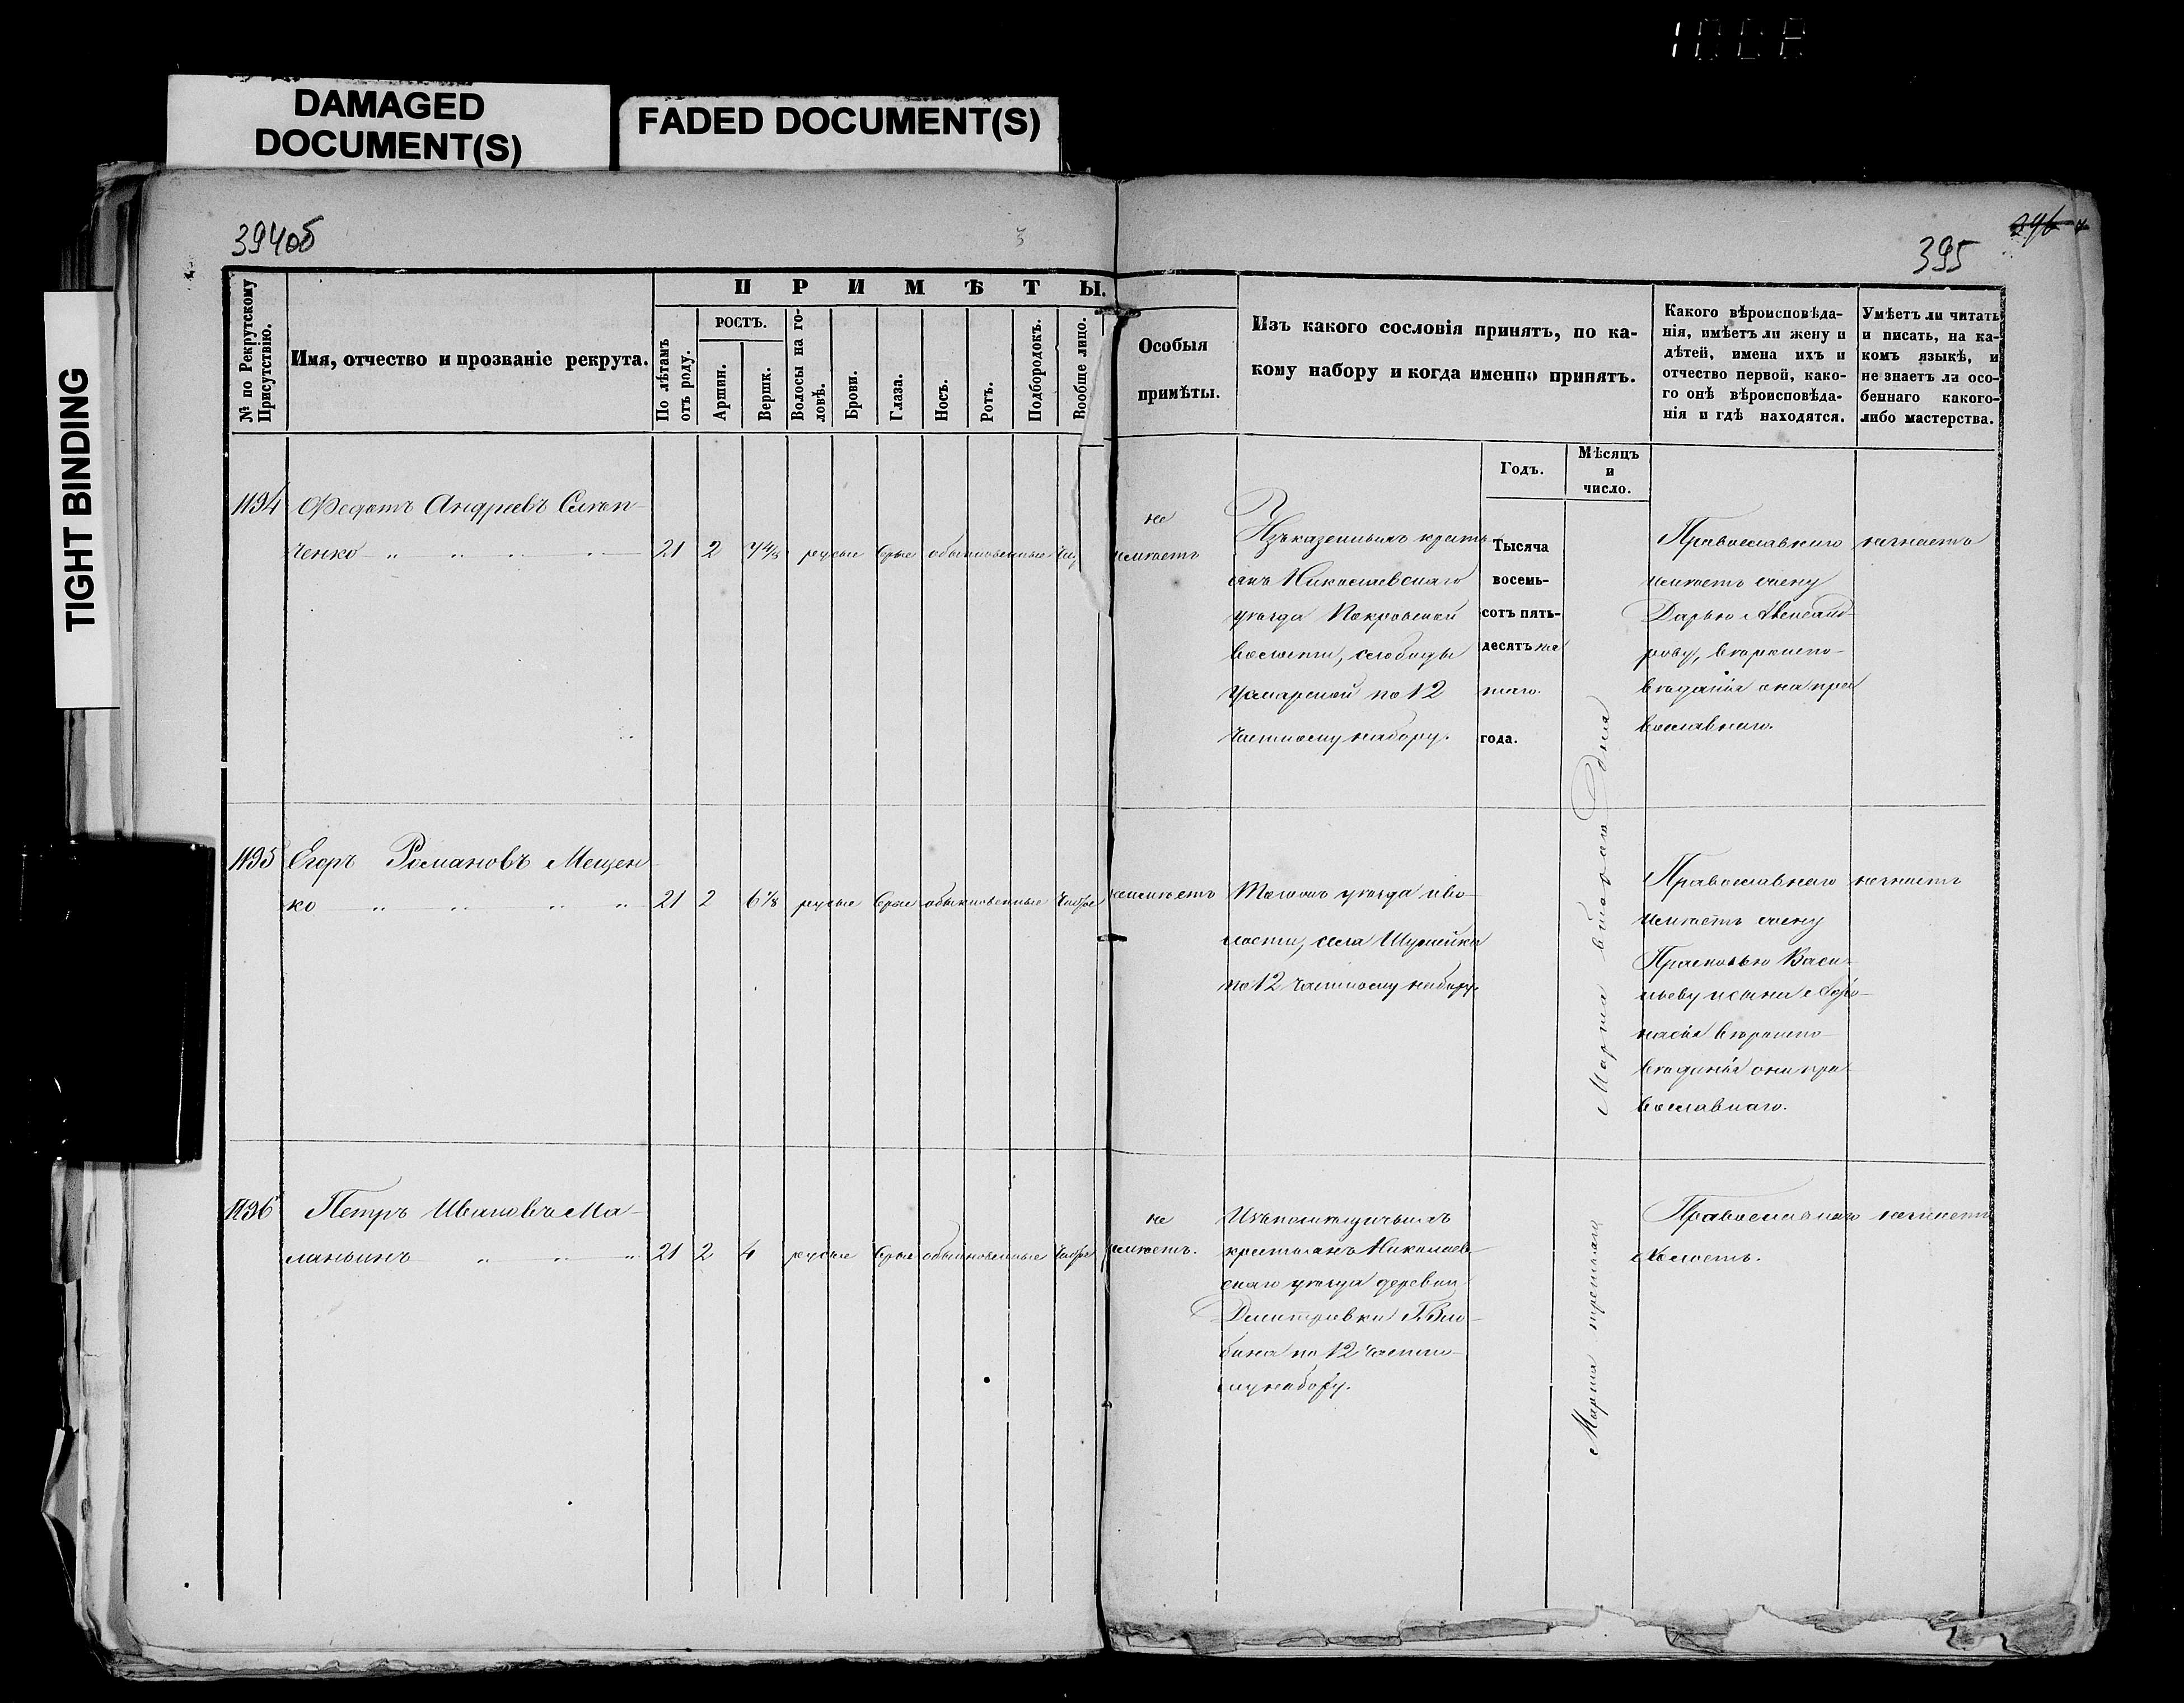 DAMAGED
DOCUMENT(S)
FADED DOCUMENT(S)
TIGHT BINDING
394об
395
№ по Рекрутскому
Присутствію.
Имя, отчество и прозваніе рекрута.
ПРИМѢТЫ.
По лѣтамъ
отъ роду.
РОСТЪ.
Аршин.
Вершк.
Волосы на го-
ловѣ.
Брови.
Глаза.
Носъ.
Ротъ.
Подбородокъ.
Вообще лицо.
Особыя
примѣты.
Изъ какого сословія принятъ, по ка-
кому набору и когда именно принятъ.
Годъ.
Мѣсяцъ
и
число.
Какого вѣроисповѣда-
нія, имѣетъ ли жену и
дѣтей, имена ихъ и
отчество первой, како-
го онѣ вѣроисповѣда-
нія и гдѣ находятся.
Умѣетъ ли читать
и писать, на ка-
комъ языкѣ, и
не знаетъ ли осо-
беннаго какого-
либо мастерства.
1194 Федотъ Андреевъ
ченко 21 2 7 4/8 русые сѣрые обыкновенные
не
имѣетъ
Изъ казенныхъ кресть
янъ Николаевскаго
уѣзда Покровской
волости, слободы
по 12
частному набору.
Тысяча
восемь-
сотъ пять-
десятъ пя
таго
года.
Марта втораго дня
Православнаго
имѣетъ жену
Дарью Александ-
рову, вѣроиспо-
вѣданія она пра
вославнаго.
незнаетъ
1195 Егоръ Романовъ Мещен-
ко 21 2 6 1/8 русые сѣрые обыкновенные чистое
неимѣетъ
Тогожъ уѣзда и во-
лости, села Шумейки
по 12 частному набору.
Православнаго
имѣетъ жену
Прасковью Васи-
льеву
вѣроиспо-
вѣданія они пра
вославнаго.
незнаетъ
1196 Петръ Ивановъ Ма-
ланьинъ 21 2 4 русые сѣрые обыкновенные чистое
не
имѣетъ.
крестьянъ Николаев-
скаго уѣзда деревни
Дмитровки
по 12 частно-
му набору.
Марта третьяго
Православнаго
Холостъ.
незнаетъ